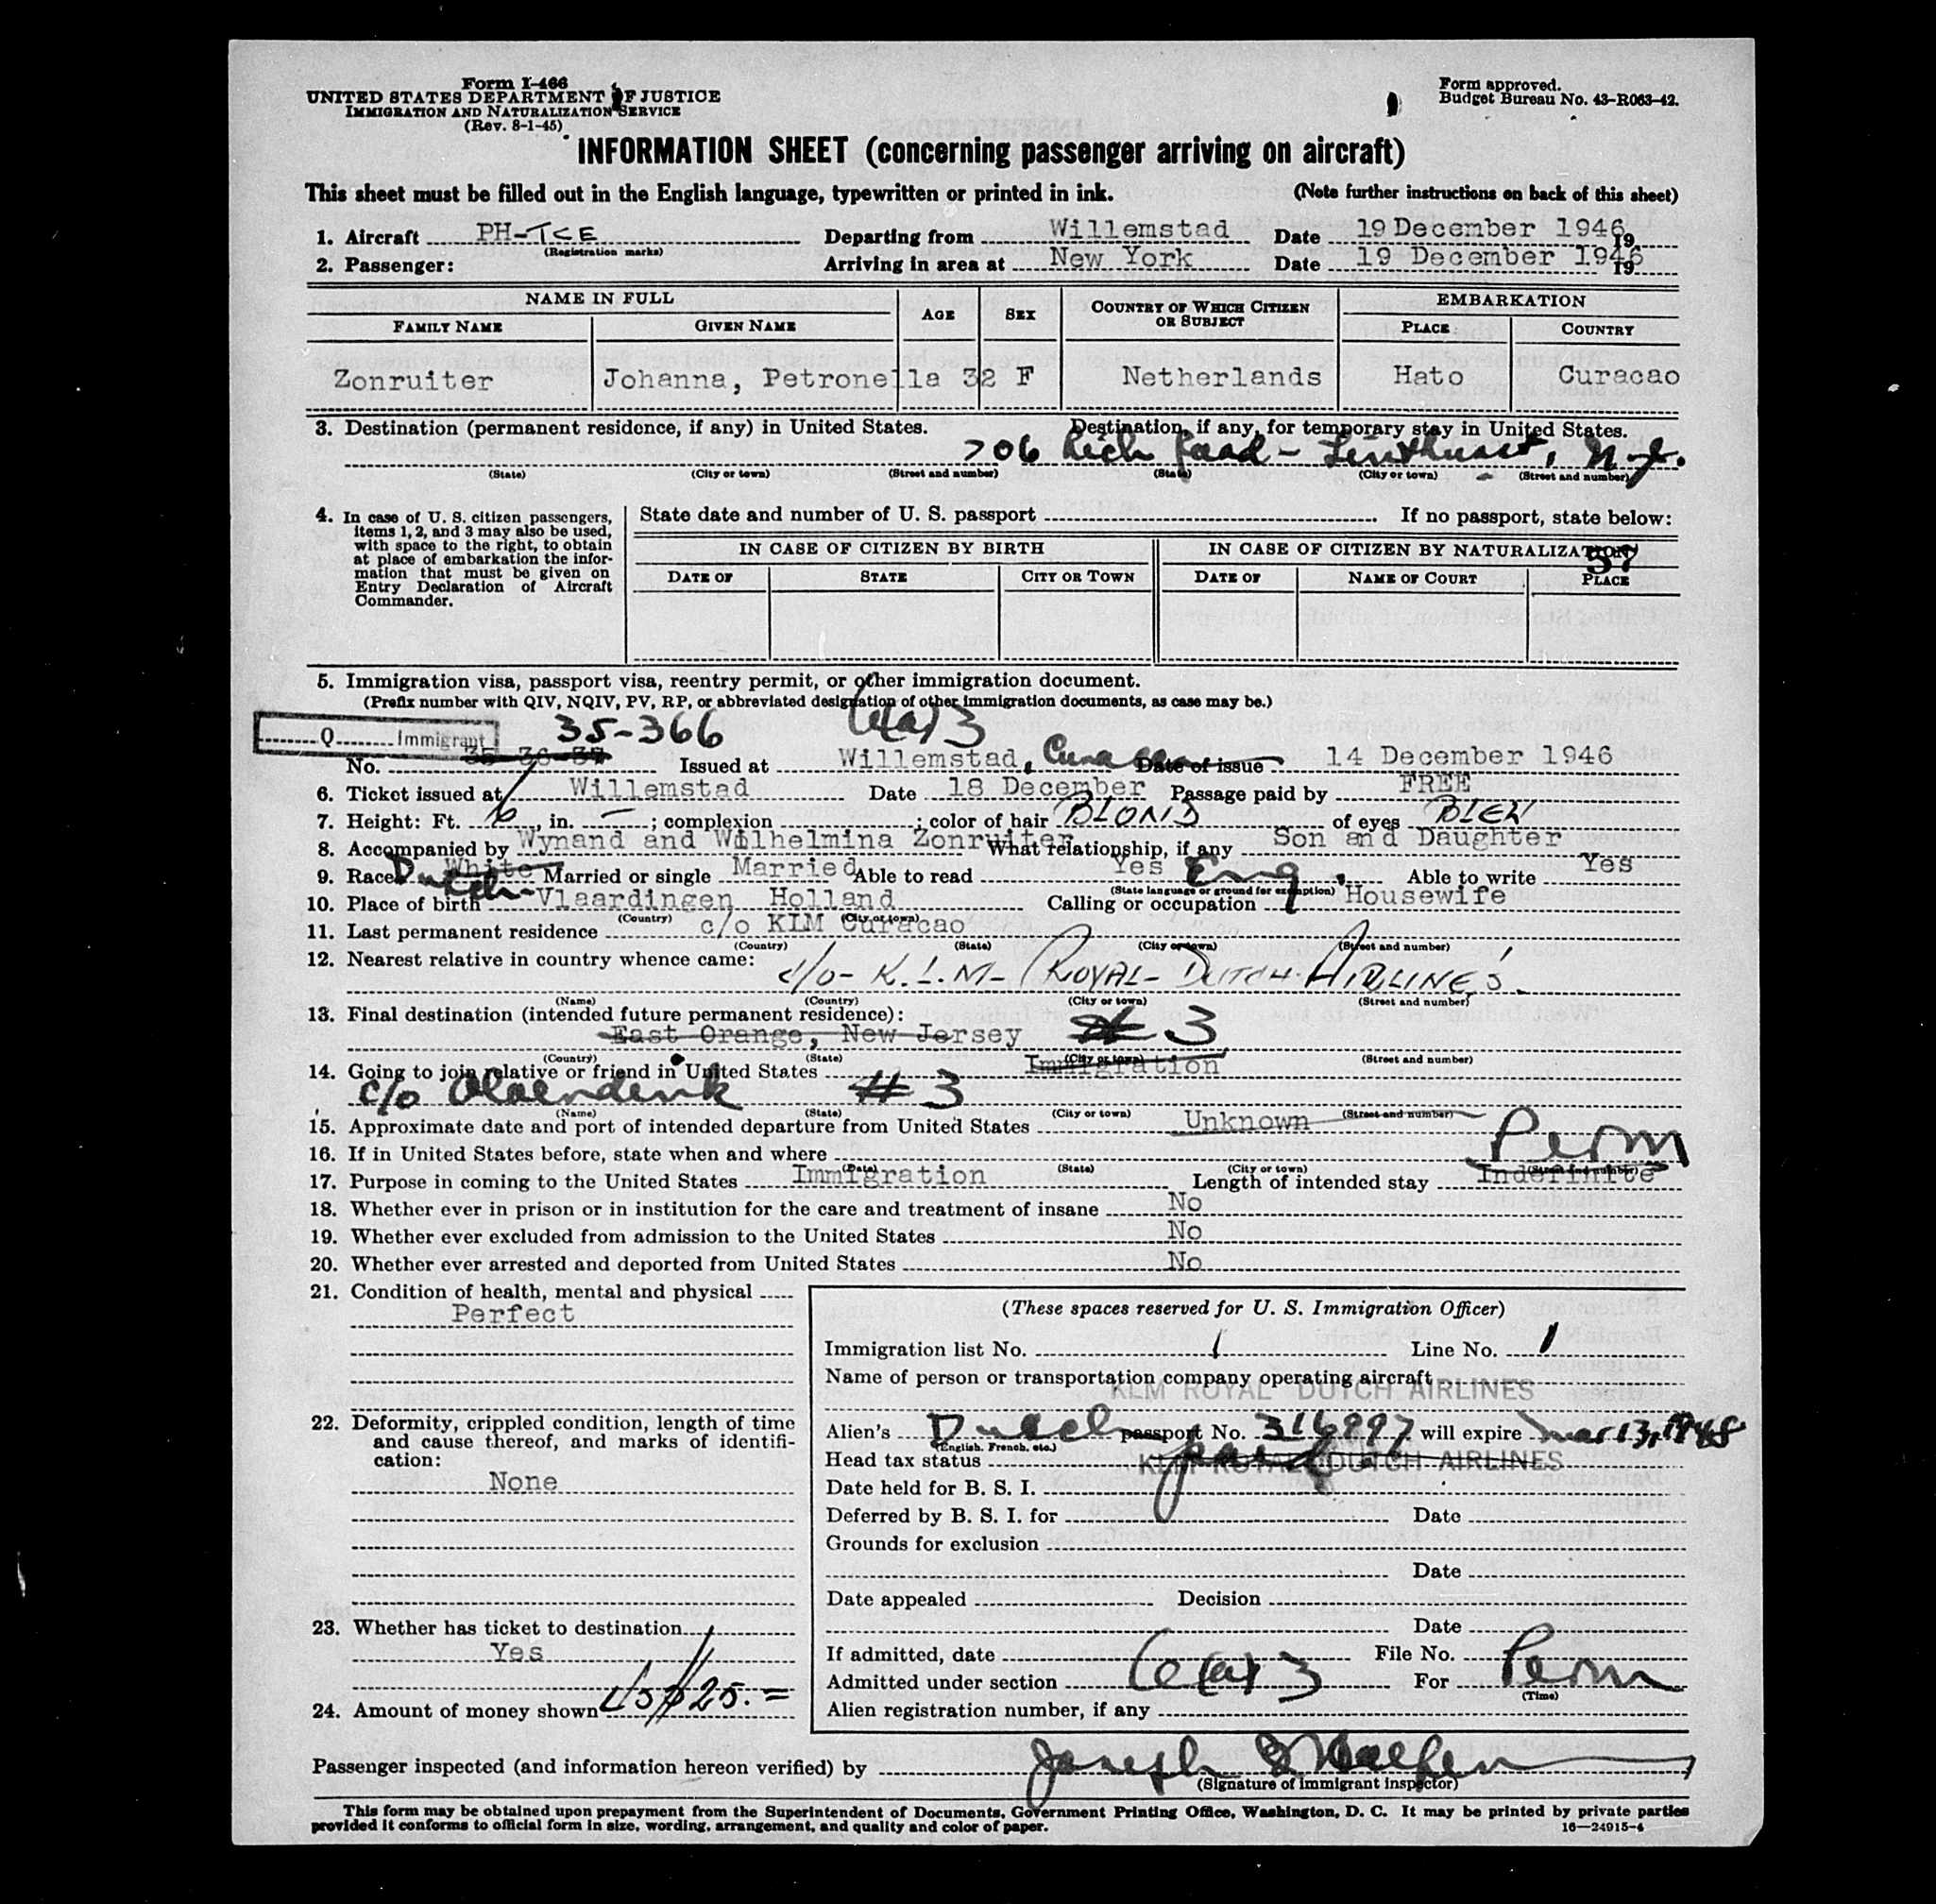 Form I-466
UNITED STATES DEPARTMENT OF JUSTICE
IMMIGRATION AND NATURALIZATION SERVICE
(Rev. 8-1-45)
Form approved.
Budget Bureau No. 43-R063-42.
INFORMATION SHEET (concerning passenger arriving on aircraft)
This sheet must be filled out in the English language, typewritten or printed in ink. (Note further instructions on back of this sheet)
1. Aircraft PH-TCE Departing from Willemstad Date 19 December 1946, 19
(Registration marks)
2. Passenger: Arriving in area at New York Date 19 December 1946 19
NAME IN FULL AGE SEX COUNTRY OF WHICH CITIZEN OR SUBJECT EMBARKATION
FAMILY NAME GIVEN NAME PLACE COUNTRY
Zonruiter Johanna, Petronella 32 F Netherlands Hato Curacao
3. Destination (permanent residence, if any) in United States. Destination, if any, for temporary stay in United States.
706 N.J.
(State) (City or town) (Street and number) (State) (City or town) (Street and number)
4. In case of U. S. citizen passengers, items 1, 2, and 3 may also be used, with space to the right, to obtain at place of embarkation the information that must be given on Entry Declaration of Aircraft Commander.
State date and number of U. S. passport If no passport, state below:
IN CASE OF CITIZEN BY BIRTH IN CASE OF CITIZEN BY NATURALIZATION
37
DATE OF STATE CITY OR TOWN DATE OF NAME OF COURT PLACE
5. Immigration visa, passport visa, reentry permit, or other immigration document.
(Prefix number with QIV, NQIV, PV, RP, or abbreviated designation of other immigration documents, as case may be.)
Q Immigrant 35-366 6(a)3
No. 35-36-37 Issued at Willemstad, Curacao Date of issue 14 December 1946
6. Ticket issued at Willemstad Date 18 December Passage paid by FREE
7. Height: Ft. 6, in. — ; complexion ; color of hair BLOND of eyes BLEW
8. Accompanied by Wynand and Wilhelmina Zonruiter What relationship, if any Son and Daughter
9. Race White Dutch Married or single Married Able to read Yes Eng. Able to write Yes
(State language or ground for exemption)
10. Place of birth Vlaardingen Holland Calling or occupation Housewife
(Country) (City or town)
11. Last permanent residence c/o KLM Curacao
(Country) (State) (City or town) (Street and number)
12. Nearest relative in country whence came: c/o- K.L.M- ROYAL- DUTCH- AIRLINES.
(Name) (Country) (City or town) (Street and number)
13. Final destination (intended future permanent residence):
East Orange, New Jersey # 3
(Country) (State) (City or town) (Street and number)
14. Going to join relative or friend in United States Immigration
c/o # 3
(Name) (State) (City or town) (Street and number)
15. Approximate date and port of intended departure from United States Unknown
16. If in United States before, state when and where Perm
(Date) (State) (City or town) (Street and number)
17. Purpose in coming to the United States Immigration Length of intended stay Indefinite
18. Whether ever in prison or in institution for the care and treatment of insane No
19. Whether ever excluded from admission to the United States No
20. Whether ever arrested and deported from United States No
21. Condition of health, mental and physical
Perfect
22. Deformity, crippled condition, length of time and cause thereof, and marks of identification:
None
23. Whether has ticket to destination
Yes
24. Amount of money shown US$ 25.=
(These spaces reserved for U. S. Immigration Officer)
Immigration list No. 1 Line No. 1
Name of person or transportation company operating aircraft
KLM ROYAL DUTCH AIRLINES
Alien's Dutch passport No. 316997 will expire Mar 13, 1948
(English, French, etc.)
Head tax status KLM ROYAL DUTCH AIRLINES paid
Date held for B. S. I.
Deferred by B. S. I. for Date
Grounds for exclusion
Date
Date appealed Decision
Date
If admitted, date File No.
Admitted under section 6(a)3 For Perm
(Time)
Alien registration number, if any
Passenger inspected (and information hereon verified) by Joseph
(Signature of immigrant inspector)
This form may be obtained upon prepayment from the Superintendent of Documents, Government Printing Office, Washington, D. C. It may be printed by private parties
provided it conforms to official form in size, wording, arrangement, and quality and color of paper. 16—24915-4